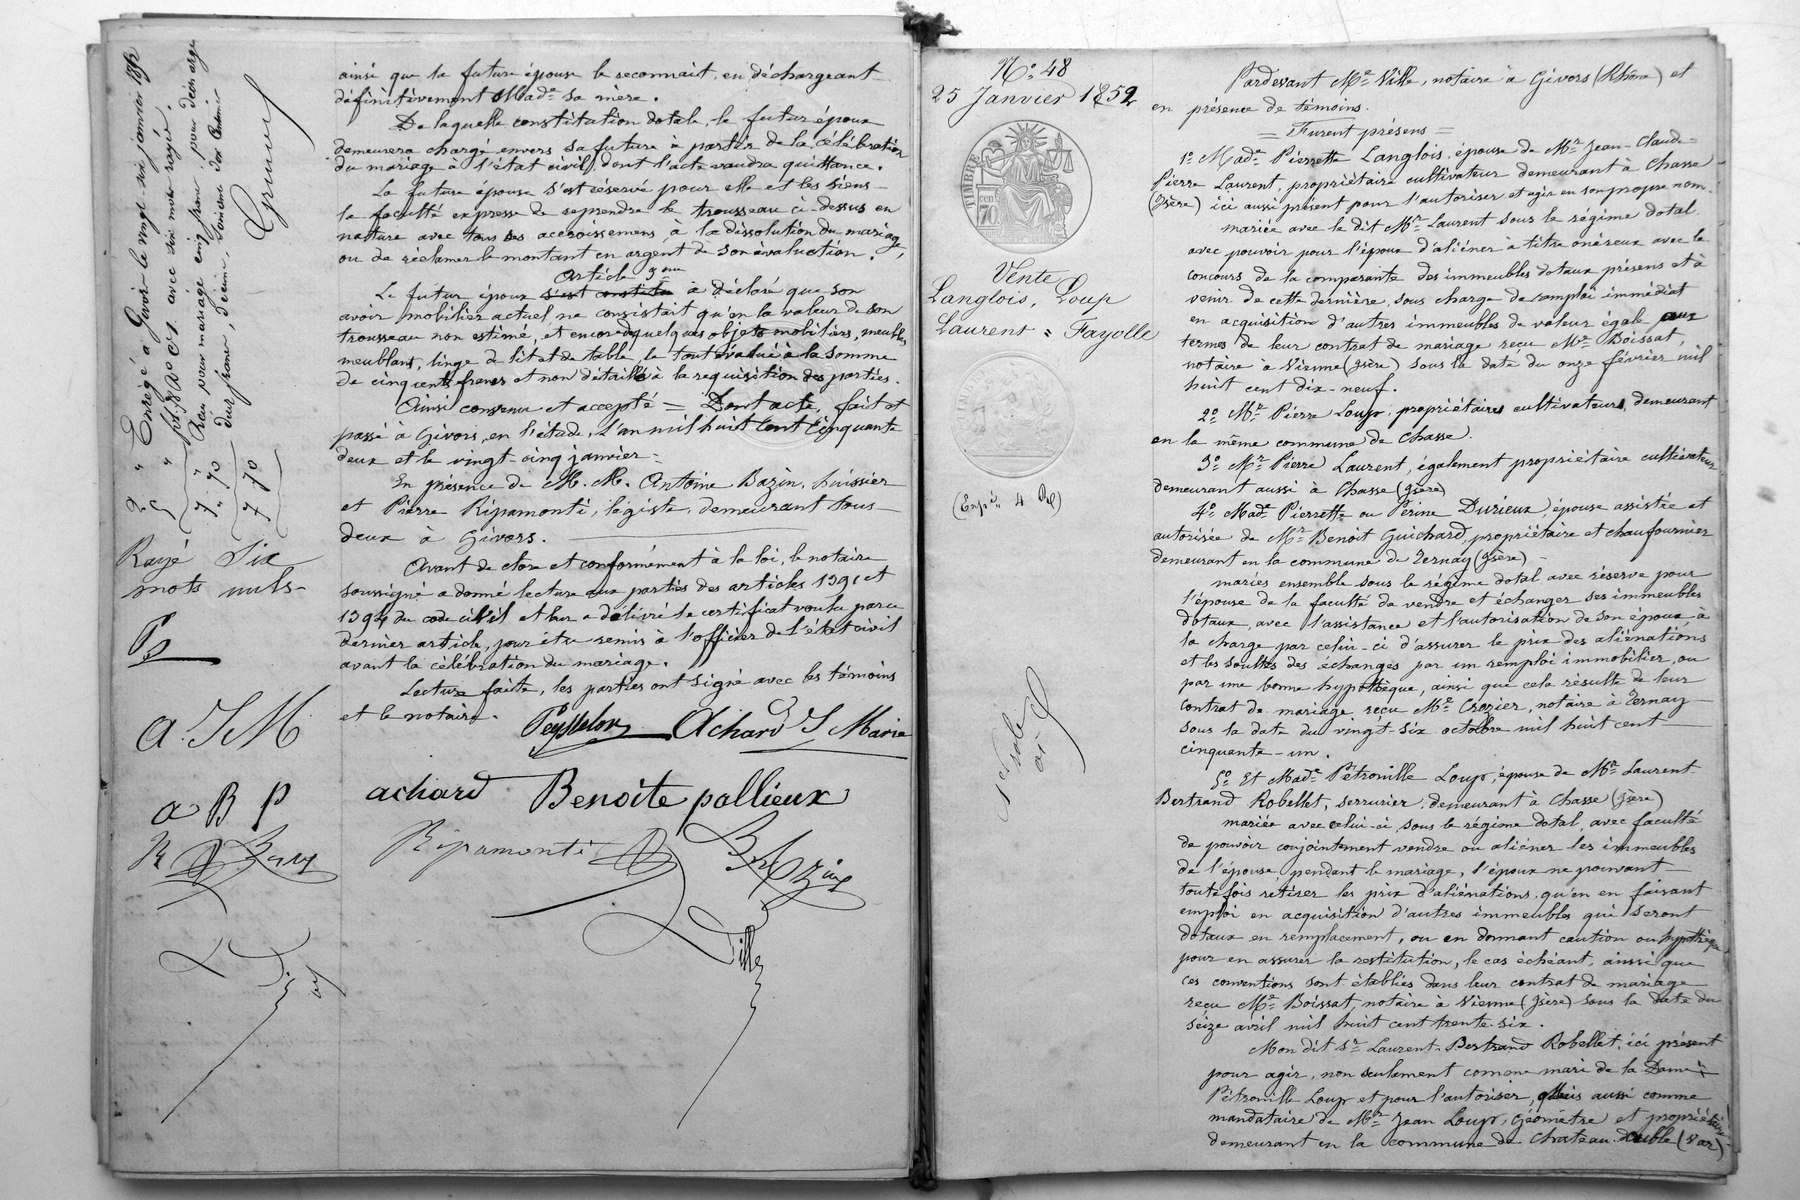 ainsi que la future épouse le reconnait, en déchargeant
définitivement Made sa mère.
De laquelle constitution dotale, le futur époux
demeurera chargé envers sa future à partir de la célébration
du mariage à l'état civil, dont l'acte vaudra quittance.
La future épouse s'est réservé pour elle et les siens
la faculté expresse de reprendre le trousseau ci-dessus en
nature avec tous ses accroissemens, à la dissolution du mariage,
ou de réclamer le montant en argent de son évaluation.
Article 3eme
Le futur époux s'est constitu à déclaré que son
avoir mobilier actuel ne consistait qu'en la valeur de son
trousseau non estimé, et encore quelques objets mobiliers, meubles
meublant, linge de lit et de table, le tout évalué à la somme
de cinq cents francs et non détaillé à la requisition des parties.
Ainsi convenu et accepté = Dont acte, fait et
passé à Givors, en l'étude, l'an mil huit cent cinquante
deux et le vingt-cinq janvier
En présence de M. M. Antoine Bazin, huissier
et Pierre Ripamonti, légiste, demeurant tous
deux à Givors.
Avant de clore et conformément à la loi, le notaire
soussigné a donné lecture aux parties des articles 1391 et
1394 du code civil et leur a délivré le certificat voulu par ce
dernier article, pour être remis à l'officier de l'état civil
avant la célébration du mariage.
Lecture faite, les parties ont signé avec les témoins
et le notaire.
Achard J Marie
achard Benoite pallieux
Ripamonti
Ville
Enregé à Givors le vingt six janvier 1852
Reçu pour mariage cinq francs, pour décharge
deux francs, décime
2 "
5 "
7 "
" 70
7 70
Rayé Six
mots nuls
P
a. J M
a B P
No 48
25 Janvier 1852
TIMBRE
70 cent
Vente
Langlois, Loup
Laurent = Fayolle
(Expé 4 Rl)
Pardevant Me Ville, notaire à Givors (Rhône) et
en présence de témoins.
= Furent présens =
1o Made Pierrette Langlois, épouse de Mr Jean-Claude=
Pierre Laurent, propriétaire cultivateur demeurant à Chasse
(Isère) ici aussi présent pour l'autoriser et agir en son propre nom.
mariée avec le dit Mr Laurent sous le régime dotal
avec pouvoir pour l'époux d'aliéner a titre onéreux avec le
concours de la comparante des immeubles dotaux présens et à
venir de cette dernière, sous charge de remploi immédiat
en acquisition d'autres immeubles de valeur égale aux
termes de leur contrat de mariage reçu Me Boissat,
notaire à Vienne (Isère) sous la date du onze février mil
huit cent dix-neuf.
2o Mr Pierre Loup, propriétaire cultivateur, demeurant
en la même commune de Chasse.
3o Mr Pierre Laurent, également propriétaire cultivateur
demeurant aussi à Chasse (Isère)
4o Made Pierrette ou Perine Durieux, épouse assistée et
autorisée de Mr Benoit Guichard, propriétaire et chaufournier
demeurant en la commune de Ternay (Isère)
mariés ensemble sous le régime dotal avec réserve pour
l'épouse de la faculté de vendre et échanger ses immeubles
dotaux, avec l'assistance et l'autorisation de son époux à
la charge par celui-ci d'assurer le prix des aliénations
et les soultes des échanges par un remploi immobilier, ou
par une bonne hypothèque, ainsi que cela résulte de leur
contrat de mariage reçu Me Crozier, notaire à Ternay
sous la date du vingt-six octobre mil huit cent
cinquante-un.
5o Et Made Pétronille Loup, épouse de Mr Laurent
Bertrand Robellet, serrurier, demeurant à Chasse (Isère)
mariée avec celui-ci sous le régime dotal, avec faculté
de pouvoir conjointement vendre ou aliéner les immeubles
de l'épouse, pendant le mariage, l'époux ne pouvant
toutefois retirer les prix d'aliénations, qu'en en faisant
emploi en acquisition d'autres immeubles qui seront
dotaux en remplacement, ou en donnant caution ou hypothèque
pour en assurer la restitution, le cas échéant, ainsi que
ces conventions sont établies dans leur contrat de mariage
reçu Me Boissat, notaire à Vienne (Isère) sous la date du
seize avril mil huit cent trente-six.
Mon dit Sr Laurent-Bertrand Robellet, ici présent
pour agir, non seulement comme mari de la Dame
Pétronille Loup et pour l'autoriser, Mais aussi comme
mandataire de Mr Jean Loup, Géomètre et propriétaire
demeurant en la commune de Chateau double (Var)